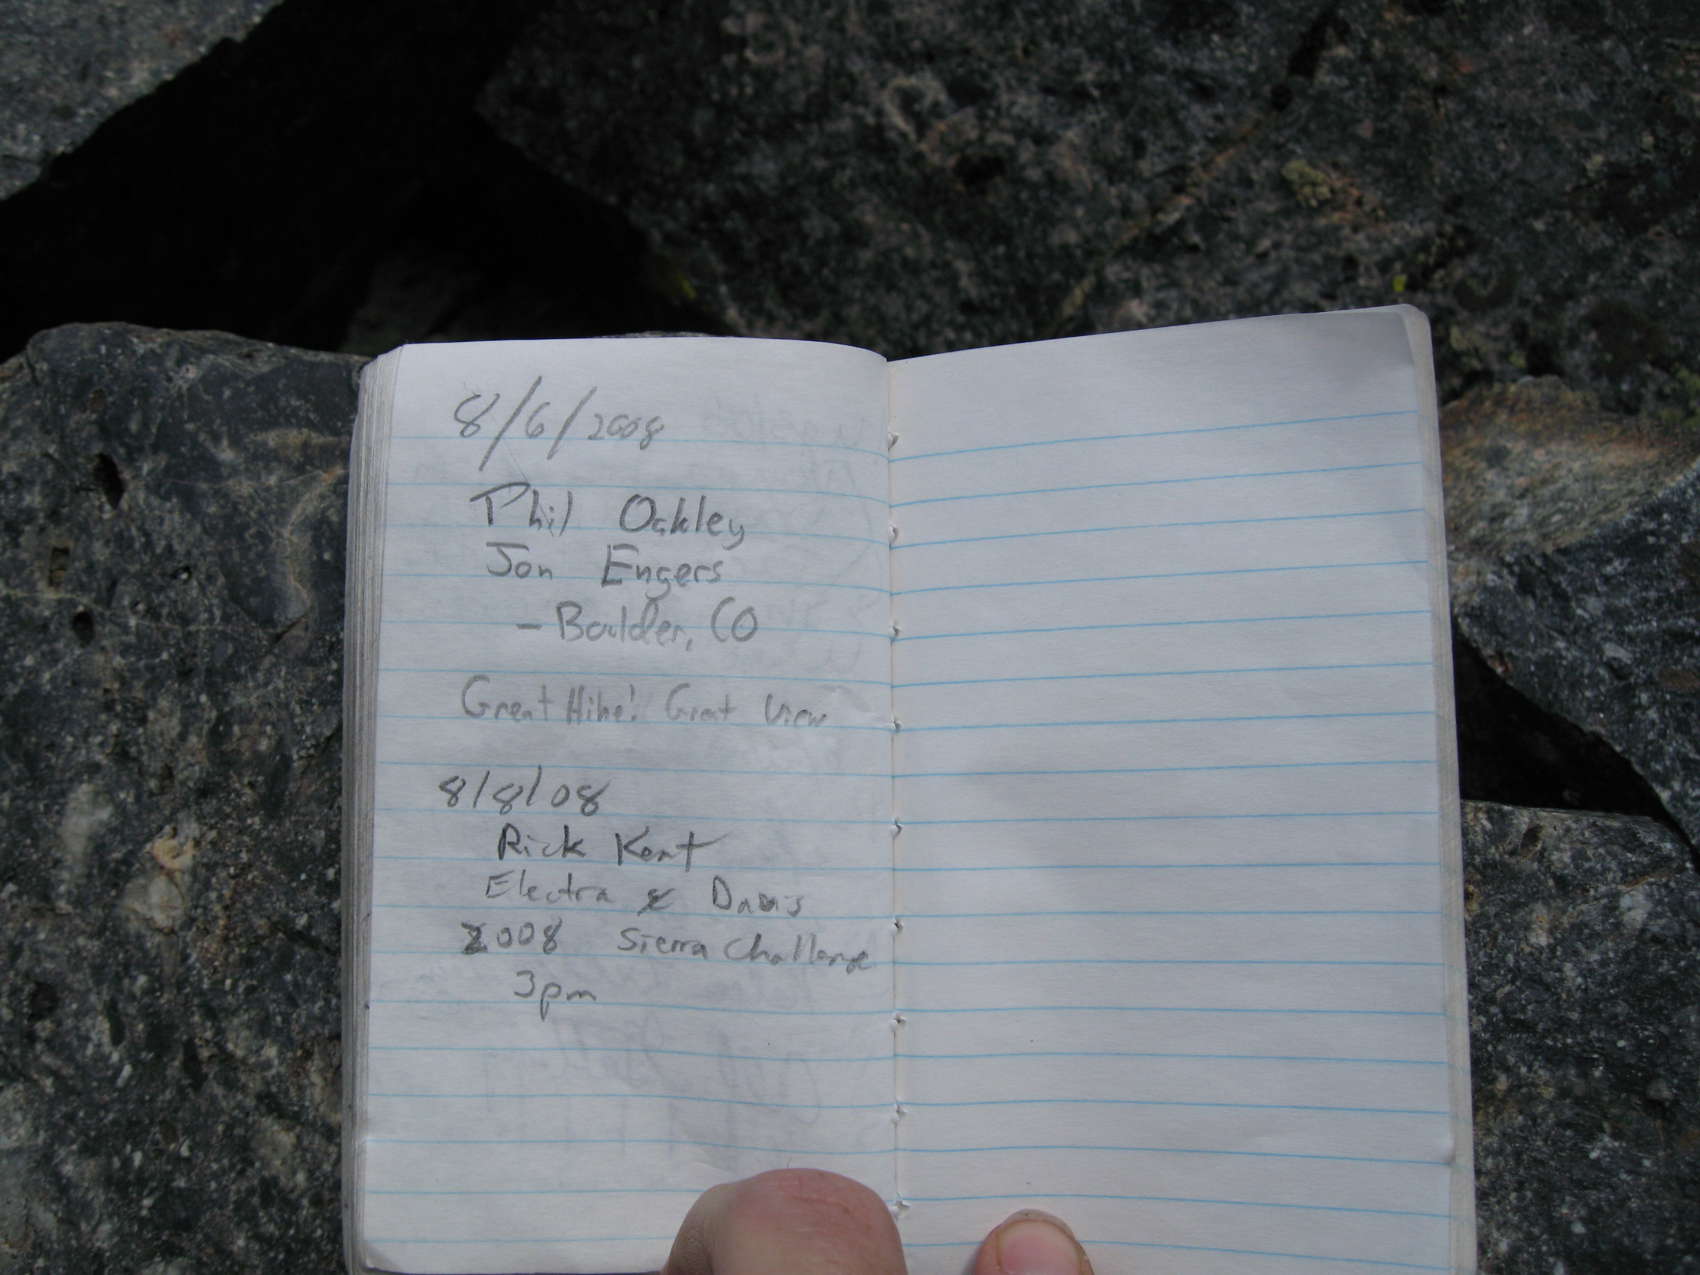 8/6/2008
Phil Oakley
Jon Engers
- Boulder, CO
Great Hike! Great View
8/8/08
Rick Kent
Electra & Davis
2008 Sierra Challenge
3pm